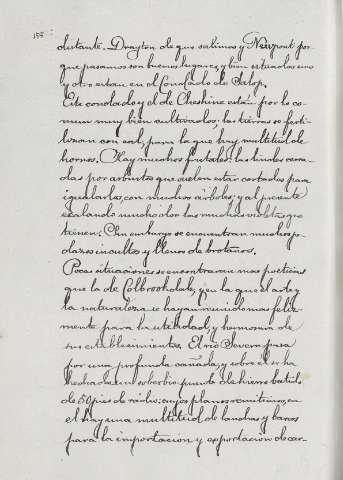 155
distante. Drayton de que salimos y Newport por
que pasamos son buenos lugares, y bien situados uno
y otro estan en el Condado de Salop.
Este condado y el de Cheshire están por lo co-
mun muy bien cultivados: las tierras se ferti-
lizan con cal, para la que hay multitud de
hornos. Hay muchos frutales: las lindes cerra-
das por arbustos que suelen estar cortados para
igualarlos, con muchos árboles; y al presente
exalando mucho olor las muchas violetas que
tienen: Sin embargo se encuentran muchos pe-
dazos incultos y llenos de
Pocas situaciones se encontraran mas poeticas
que la de Colbrookdale, y en la que el arte y
la naturaleza se hayan unido mas feliz-
mente para la utilidad, y hermosura de
sus establecimientos. El rio Severn pasa
por una profunda cañada, y sobre él se ha
hechado un soberbio puente de hierro batido
de 50 pies de radio: cuyos planos remitimos, en
el hay una multitud de lanchas y barcos
para la importacion y exportacion de car-